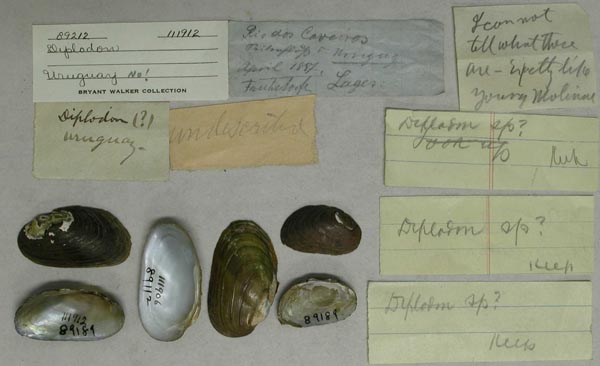 89212 111912
Diplodon
Uruguay No!
BRYANT WALKER COLLECTION
Rio dos
April 1887.
Lager.
I can not
tell what these
are - Exactly like
young Molinae
Diplodon (?)
Uruguay-
undescribed
Diplodon sp?
look up
Keep
Diplodon sp?
Keep
Diplodon sp?
Keep
111912
89189
111906
89112
89189